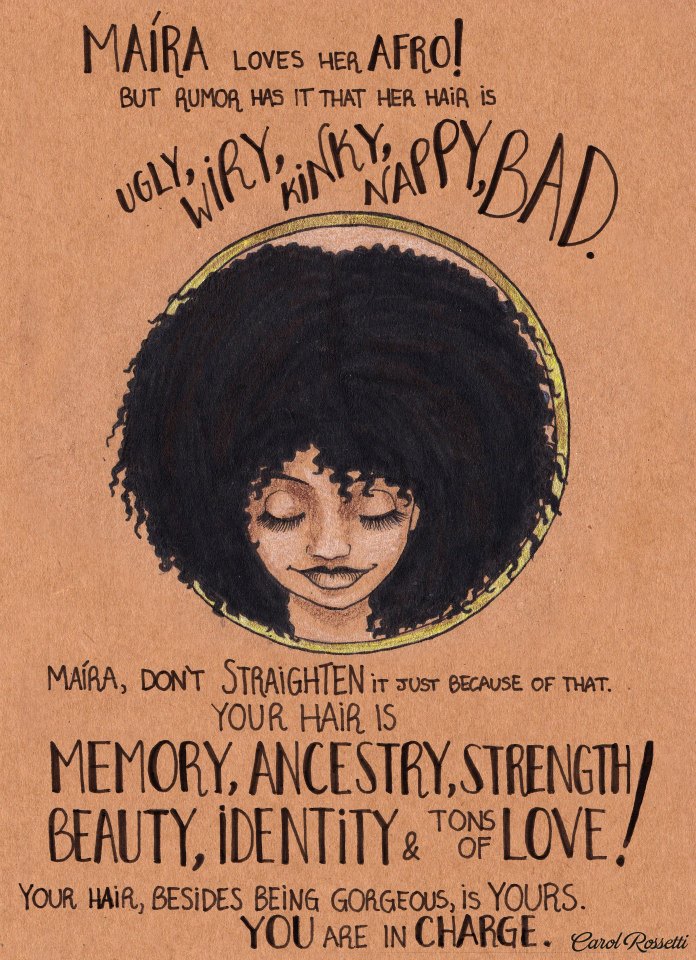 MAÍRA LOVES HER AFRO!
BUT RUMOR HAS IT THAT HER HAIR IS
UGLY, WIRY, KINKY, NAPPY, BAD.
MAÍRA, DON'T STRAIGHTEN IT JUST BECAUSE OF THAT.
YOUR HAIR IS
MEMORY, ANCESTRY, STRENGTH
BEAUTY, IDENTITY & TONS OF LOVE!
YOUR HAIR, BESIDES BEING GORGEOUS, IS YOURS.
YOU ARE IN CHARGE.
Carol Rossetti